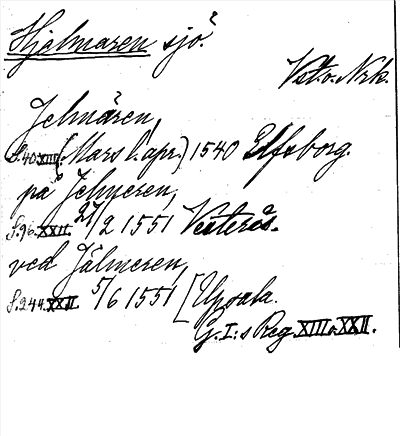 Hjelmaren sjö.
Vstm. o. Nrk.
Jelmären,
S. 40. XIII. (Mars l. apr.) 1540 Elfsborg.
på Jelmeren,
S. 96. XXII. 27/2 1551 Vesterås.
ved Jälmeren,
S. 244. XXII. 5/6 1551 [Upsala.
G. I:s Reg. XIII o. XXII.